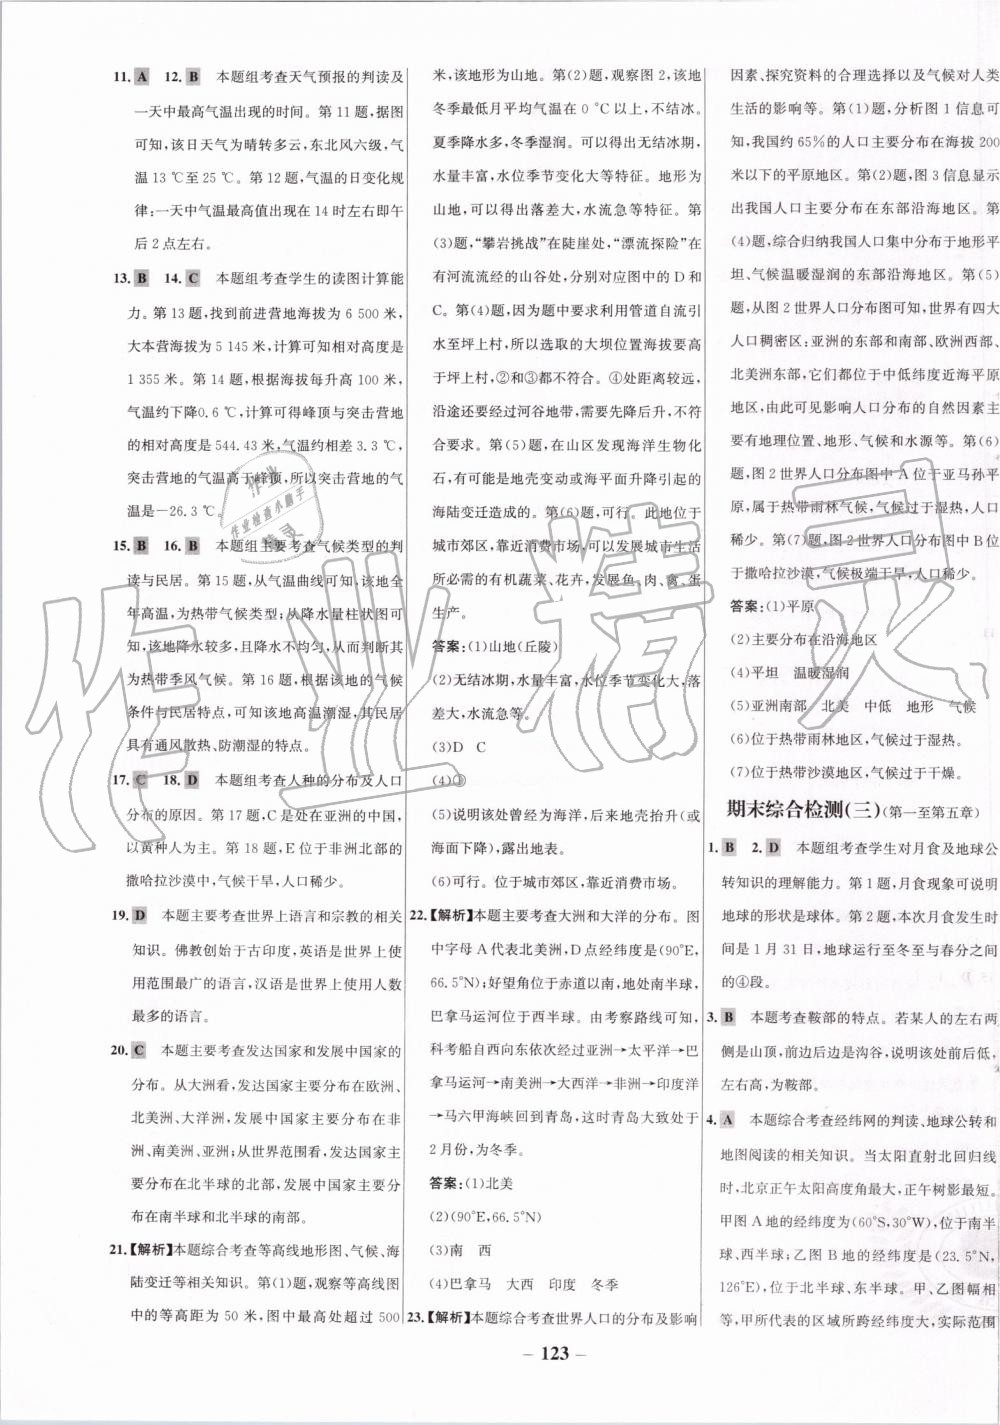 11. A 12. B 本题组考查天气预报的判读及
一天中最高气温出现的时间。第 11 题,据图
可知,该日天气为晴转多云,东北风六级,气
温 13 ℃至 25 ℃。第 12 题,气温的日变化规
律:一天中气温最高值出现在 14 时左右即午
后 2 点左右。
13. B 14. C 本题组考查学生的读图计算能
力。第 13 题,找到前进营地海拔为 6 500 米,
大本营海拔为 5 145 米,计算可知相对高度是
1 355 米。第 14 题,根据海拔每升高 100 米,
气温约下降0.6 ℃,计算可得峰顶与突击营地
的相对高度是 544.43 米,气温约相差 3.3 ℃,
突击营地的气温高于峰顶,所以突击营地的气
温是-26.3 ℃。
15. B 16. B 本题组主要考查气候类型的判
读与民居。第 15 题,从气温曲线可知,该地全
年高温,为热带气候类型;从降水量柱状图可
知,该地降水较多,且降水不均匀,从而判断其
为热带季风气候。第 16 题,根据该地的气候
条件与民居特点,可知该地高温潮湿,其民居
具有通风散热、防潮湿的特点。
17. C 18. D 本题组考查人种的分布及人口
分布的原因。第 17 题,C 是处在亚洲的中国,
以黄种人为主。第 18 题,E 位于非洲北部的
撒哈拉沙漠中,气候干旱,人口稀少。
19. D 本题主要考查世界上语言和宗教的相关
知识。佛教创始于古印度,英语是世界上使
用范围最广的语言,汉语是世界上使用人数
最多的语言。
20. C 本题主要考查发达国家和发展中国家的
分布。从大洲看,发达国家主要分布在欧洲、
北美洲、大洋洲,发展中国家主要分布在非
洲、南美洲、亚洲;从世界范围看,发达国家主
要分布在北半球的北部,发展中国家主要分
布在南半球和北半球的南部。
21.【解析】本题综合考查等高线地形图、气候、海
陆变迁等相关知识。第(1)题,观察等高线图
中的等高距为 50 米,图中最高处超过 500
米,该地形为山地。第(2)题,观察图 2,该地
冬季最低月平均气温在 0 ℃以上,不结冰。
夏季降水多,冬季湿润。可以得出无结冰期,
水量丰富,水位季节变化大等特征。地形为
山地,可以得出落差大,水流急等特征。第
(3)题,“攀岩挑战”在陡崖处,“漂流探险”在
有河流流经的山谷处,分别对应图中的 D 和
C。第(4)题,因为题中要求利用管道自流引
水至坪上村,所以选取的大坝位置海拔要高
于坪上村,①②和③都不符合。④处距离较远,
沿途还要经过河谷地带,需要先下后升,不符
合要求。第(5)题,在山区发现海洋生物化
石,有可能是地壳变动或海平面升降引起的
海陆变迁造成的。第(6)题,可行。此地位于
城市郊区,靠近消费市场,可以发展城市生活
所必需的有机蔬菜、花卉,发展鱼、肉、禽、蛋
生产。
答案:(1)山地(丘陵)
(2)无结冰期,水量丰富,水位季节变化大,落
差大,水流急等。
(3)D C
(4)①
(5)说明该处曾经为海洋,后来地壳抬升(或
海平面下降),露出地表。
(6)可行。位于城市郊区,靠近消费市场。
22.【解析】本题主要考查大洲和大洋的分布。图
中字母 A 代表北美洲,D 点经纬度是(90°E,
66.5°N);好望角位于赤道以南,地处南半球,
巴拿马运河位于西半球。由考察路线可知,
科考船自西向东依次经过亚洲→太平洋→巴
拿马运河→南美洲→大西洋→非洲→印度洋
→马六甲海峡回到青岛,这时青岛大致处于
2 月份,为冬季。
答案:(1)北美
(2)(90°E,66.5°N)
(3)南 西
(4)巴拿马 大西 印度 冬季
23.【解析】本题综合考查世界人口的分布及影响
因素、探究资料的合理选择以及气候对人类
生活的影响等。第(1)题,分析图 1 信息可
知,我国约 65%的人口主要分布在海拔 200
米以下的平原地区。第(2)题,图 3 信息显示
出我国人口主要分布在东部沿海地区。第
(4)题,综合归纳我国人口集中分布于地形平
坦、气候温暖湿润的东部沿海地区。第(5)
题,从图 2 世界人口分布图可知,世界有四大
人口稠密区:亚洲的东部和南部、欧洲西部、
北美洲东部,它们都位于中低纬度近海平原
地区,由此可见影响人口分布的自然因素主要
有地理位置、地形、气候和水源等。第(6)
题,图 2 世界人口分布图中 A 位于亚马孙平
原,属于热带雨林气候,气候过于湿热,人口
稀少。第(7)题,图 2 世界人口分布图中 B 位
于撒哈拉沙漠,气候极端干旱,人口稀少。
答案:(1)平原
(2)主要分布在沿海地区
(4)平坦 温暖湿润
(5)亚洲南部 北美 中低 地形 气候
(6)位于热带雨林地区,气候过于湿热。
(7)位于热带沙漠地区,气候过于干燥。
期末综合检测(三)(第一至第五章)
1. B 2. D 本题组考查学生对月食及地球公
转知识的理解能力。第 1 题,月食现象可说明
地球的形状是球体。第 2 题,本次月食发生时
间是 1 月 31 日,地球运行至冬至与春分之间
的④段。
3. B 本题考查鞍部的特点。若某人的左右两
侧是山顶,前后边是沟谷,说明该处前后低,
左右高,为鞍部。
4. A 本题综合考查经纬网的判读、地球公转和
地图阅读的相关知识。当太阳直射北回归线
时,北京正午太阳高度角最大,正午树影最短。
甲图 A 地的经纬度为(60°S,30°W),位于南半
球、西半球;乙图 B 地的经纬度是(23.5°N,
126°E),位于北半球、东半球。甲、乙图幅相
等,甲所代表的区域所跨经纬度大,实际范围
- 123 -
作业精灵
作业
作业检查小助手
精灵